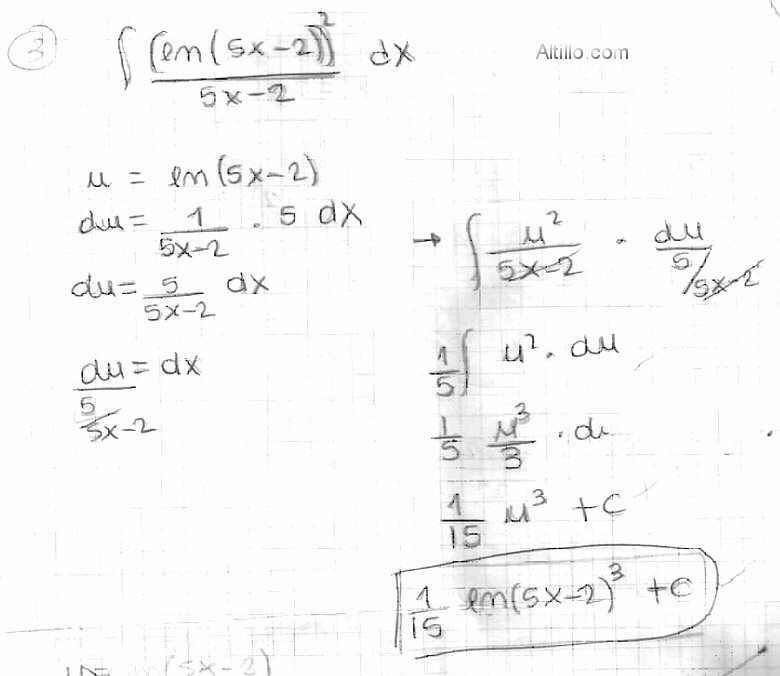 3
∫ (ln(5x-2))² / 5x-2 dx
Altillo.com
u = ln(5x-2)
du = 1/5x-2 . 5 dx
du = 5/5x-2 dx
du / 5/5x-2 = dx
→ ∫ u²/5x-2 . du / 5/5x-2
1/5 ∫ u² . du
1/5 u³/3 . du
1/15 u³ + C
1/15 ln(5x-2)³ + C